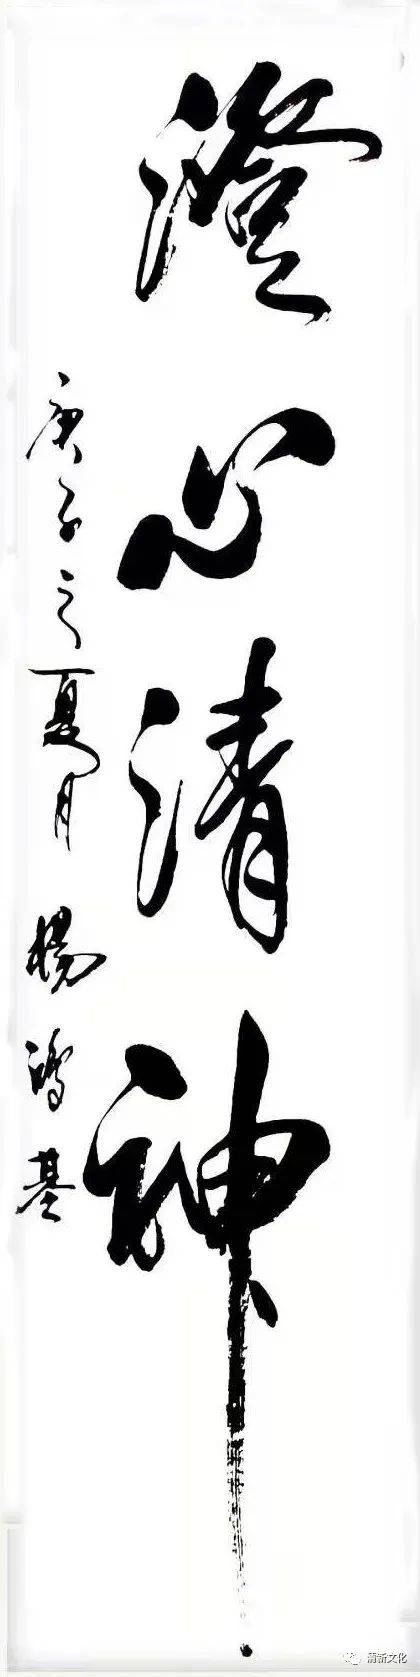 澄心清神
庚子之夏月 楊鴻基
清新文化